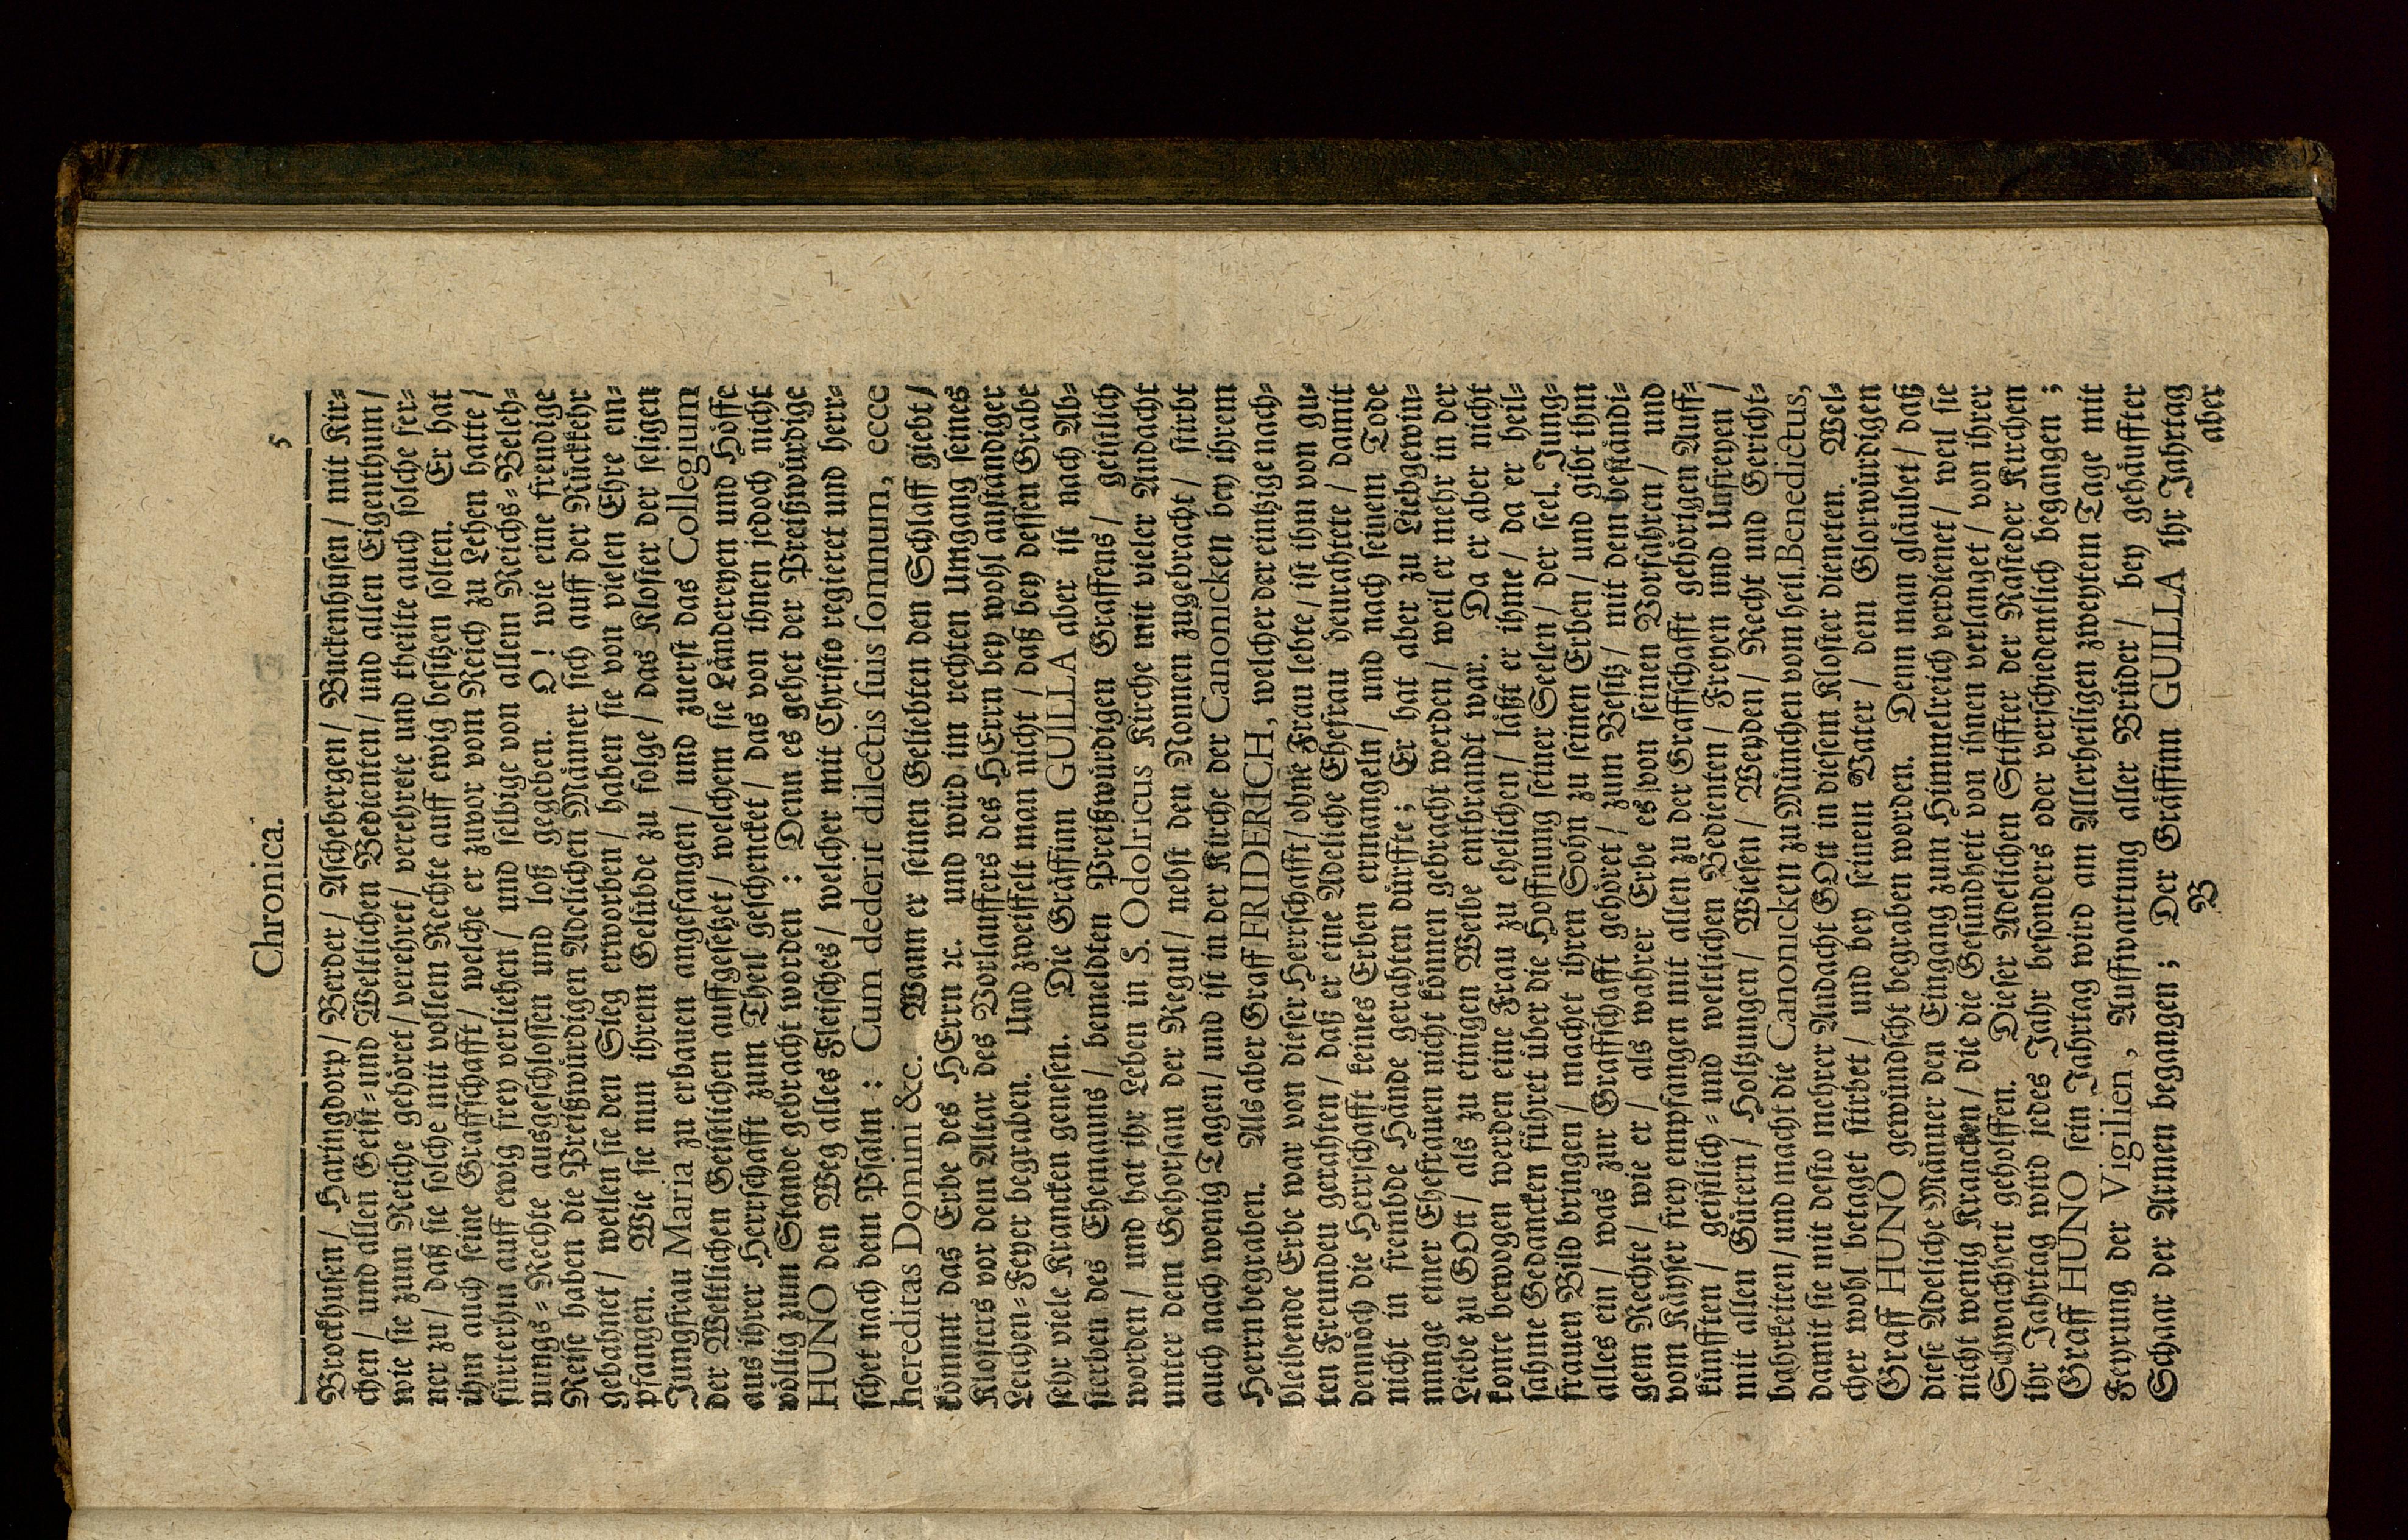 Chronica. 5
Brockhusen/ Haringdorp/ Werder/ Aschebergen/ Buckenhusen/ mit Kir⸗
chen/ und allen Geist⸗und Weltlichen Bedienten/ und allen Eigenthum/
wie sie zum Reiche gehöret/ verehret/ verehrete und theilte auch solche fer⸗
ner zu/ daß sie solche mit vollem Rechte auff ewig besitzen solten. Er hat
ihm auch seine Graffschafft/ welche er zuvor vom Reich zu Lehen hatte/
fürterhin auff ewig frey verliehen/ und selbige von allem Reichs⸗Beleh⸗
nungs⸗Rechte ausgeschlossen und loß gegeben. O! wie eine freudige
Reise haben die Preißwürdigen Adelichen Männer sich auff der Rückkehr
gebahnet/ weilen sie den Sieg erworben/ haben sie von vielen Ehre em⸗
pfangen. Wie sie nun ihrem Gelübde zu folge/ das Kloster der seligen
Jungfrau Maria zu erbauen angefangen/ und zuerst das Collegium
der Weltlichen Geistlichen auffgesetzet/ welchem sie Länderehen und Höffe
aus ihrer Herrschafft zum Theil geschencket/ das von ihnen jedoch nicht
völlig zum Stande gebracht worden: Denn es gehet der Preißwürdige
HUNO den Weg alles Fleisches/ welcher mit Christo regieret und herr⸗
schet nach dem Psalm: Cum dederit dilectis suis somnum, ecce
hereditas Domini &c. Wann er seinen Geliebten den Schlaff giebt/
kömmt das Erbe des HErrn ꝛc. und wird im rechten Umgang seines
Klosters vor dem Altar des Vorlauffers des HErrn bey wohl anständiger
Leichen⸗Feyer begraben. Und zweiffelt man nicht/ daß bey dessen Grabe
sehr viele Krancken genesen. Die Gräffinn GUILLA aber ist nach Ab⸗
sterben des Ehemanns/ bemeldten Preißwürdigen Graffens/ geistlich
worden/ und hat ihr Leben in S. Odolricus Kirche mit vieler Andacht
unter dem Gehorsam der Regul/ nebst den Nonnen zugebracht/ stirbt
auch nach wenig Tagen/ und ist in der Kirche der Canonicken bey ihrem
Herrn begraben. Als aber Graff FRIDERICH, welcher der eintzige nach⸗
bleibende Erbe war von dieser Herrschafft/ ohne Frau lebte/ ist ihm von gu⸗
ten Freunden gerahten/ daß er eine Adeliche Ehefrau heurahtete/ damit
dennoch die Herrschafft keines Erben ermangeln/ und nach seinem Tode
nicht in frembde Hände gerahten dürffte; Er hat aber zu Liebgewin⸗
nunge einer Ehefrauen nicht können gebracht werden/ weil er mehr in der
Liebe zu GOtt/ als zu einigen Weibe entbrandt war. Da er aber nicht
konte bewogen werden eine Frau zu ehelichen/ läßt er ihme/ da er heil⸗
sahme Gedancken führet über die Hoffnung seiner Seelen/ der seel. Jung⸗
frauen Bild bringen/ machet ihren Sohn zu seinen Erben/ und gibt ihm
alles ein/ was zur Graffschafft gehöret/ zum Besitz/ mit dem beständi⸗
gem Rechte/ wie er/ als wahrer Erbe es von seinen Vorfahren/ und
vom Käyser frey empfangen mit allen zu der Graffschafft gehörigen Auff⸗
künfften/ geistlich⸗und weltlichen Bedienten/ Freyen und Unfreyen/
mit allen Gütern/ Holtzungen/ Wiesen/ Weyden/ Recht und Gericht⸗
bahrkeiten/ und macht die Canonicken zu München vom heil. Benedictus,
damit sie mit desto mehrer Andacht GOtt in diesem Kloster dieneten. Wel⸗
cher wohl betaget stirbet/ und bey seinem Vater/ dem Glorwürdigen
Graff HUNO gewündscht begraben worden. Denn man gläubet/ daß
diese Adeliche Männer den Eingang zum Himmelreich verdienet/ weil sie
nicht wenig Krancken/ die die Gesundheit von ihnen verlanget/ von ihrer
Schwachheit geholffen. Dieser Adelichen Stiffter der Rasteder Kirchen
ihr Jahrtag wird jedes Jahr besonders oder verschiedentlich begangen;
Graff HUNO sein Jahrtag wird am Allerheiligen zweytem Tage mit
Feyrung der Vigilien, Auffwartung aller Brüder/ bey gehäuffter
Schaar der Armen begangen; Der Gräffinn GUILLA ihr Jahrtag
B aber